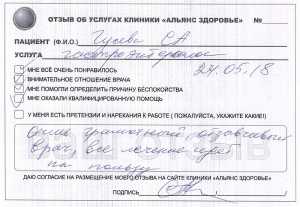 ОТЗЫВ ОБ УСЛУГАХ КЛИНИКИ «АЛЬЯНС ЗДОРОВЬЕ» №
ПАЦИЕНТ (Ф.И.О.) Гусева СА
УСЛУГА гастроэнтеролог
МНЕ ВСЁ ОЧЕНЬ ПОНРАВИЛОСЬ 24.05.18
ВНИМАТЕЛЬНОЕ ОТНОШЕНИЕ ВРАЧА
МНЕ ПОМОГЛИ ОПРЕДЕЛИТЬ ПРИЧИНУ БЕСПОКОЙСТВА
МНЕ ОКАЗАЛИ КВАЛИФИЦИРОВАННУЮ ПОМОЩЬ
У МЕНЯ ЕСТЬ ПРЕТЕНЗИИ И НАРЕКАНИЯ К РАБОТЕ ( ПОЖАЛУЙСТА, УКАЖИТЕ КАКИЕ!)
Очень грамотный, отзывчивый
врач, все лечение идет
на пользу
ДАЮ СОГЛАСИЕ НА РАЗМЕЩЕНИЕ МОЕГО ОТЗЫВА НА САЙТЕ КЛИНИКИ «АЛЬЯНС ЗДОРОВЬЕ»
ПОДПИСЬ